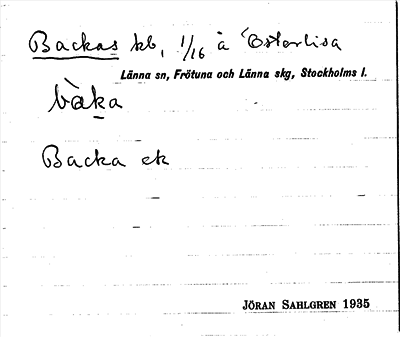 Backas kb, 1/16 à Österlisa
Länna sn, Frötuna och Länna skg, Stockholms l.
bàka
Backa ek
JÖRAN SAHLGREN 1935